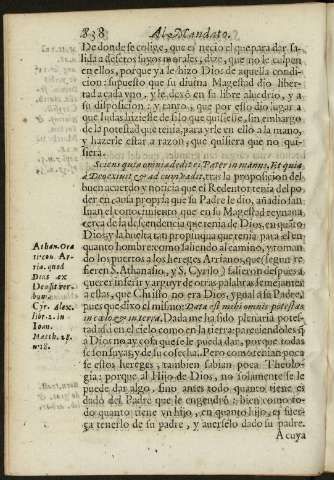 838 Al Mandato.
De donde se colige, que es necio el que para dar sa-
lida a desetos suyos morales, dize, que no le culpen
en ellos, porque ya le hizo Dios de aquella condi-
cion: supuesto que su diuina Magestad dio liber-
tad a cada vno, y le dexò en su libre aluedrio, y a
su disposicion: y tanto, que por esso dio lugar a
que Iudas hiziesse de si lo que quisiesse, sin embargo
de la potestad que tenia, para yrle en ello a la mano,
y hazerle estar a razon, que quisiera que no qui-
siera.
Sciens quia omnia dedit ei Pater in manus, Et quia
à Deo exiuit, & ad eum vadit, tras la proposicion del
buen acuerdo y noticia que el Redentor tenia del po-
der en causa propria que su Padre le dio, añadio san
Iuan el conocimiento que en su Magestad reynaua,
cerca de la descendencia que tenia de Dios, en quãto
Dios: y la huelta tan propinqua que tenia, para el en
quanto hombre: como saliendo al camino, y toman-
do los puertos a los hereges Arrianos, que (segun re-
fieren S. Athanasio, y S. Cyrilo) salieron despues a
querer inferir y arguyr de otras palabras semejantes
a estas, que Christo no era Dios, y gual a su Padre,
pues que dixo el mismo: Data est mihi omnis potestas
in cælo & in terra. Dada me ha sido plenaria potes-
tad assi en el cielo como en la tierra: pareciendoles q̃
a Dios no ay cosa que se le pueda dar, porque todas
se son suyas, y de su cosecha. Pero como tenian poca
fe estos hereges, tambien sabian poca Theolo-
gia: porque al Hijo de Dios, no solamente se le
puede dar algo, sino antes todo quanto tiene es
dado del Padre que le engendrò: bien como to-
do quanto tiene vn hijo, en quanto hijo, es fuer-
ça tenerlo de su padre, y auerselo dado su padre.
A cuya
Athan. Ora
tr. con. Ar-
ria. quod
Deus ex
Deo sit ver-
bum.
Cyr. Alex.
libr. 2. in
Ioan.
Matth. 28.
nu. 18.